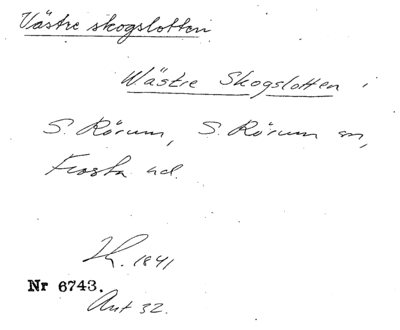 Västre skogslotten
Wästre Skogslotten i
S. Rörum, S. Rörum sn,
Frosta hd.
1841
Nr 6743.
Akt 32.